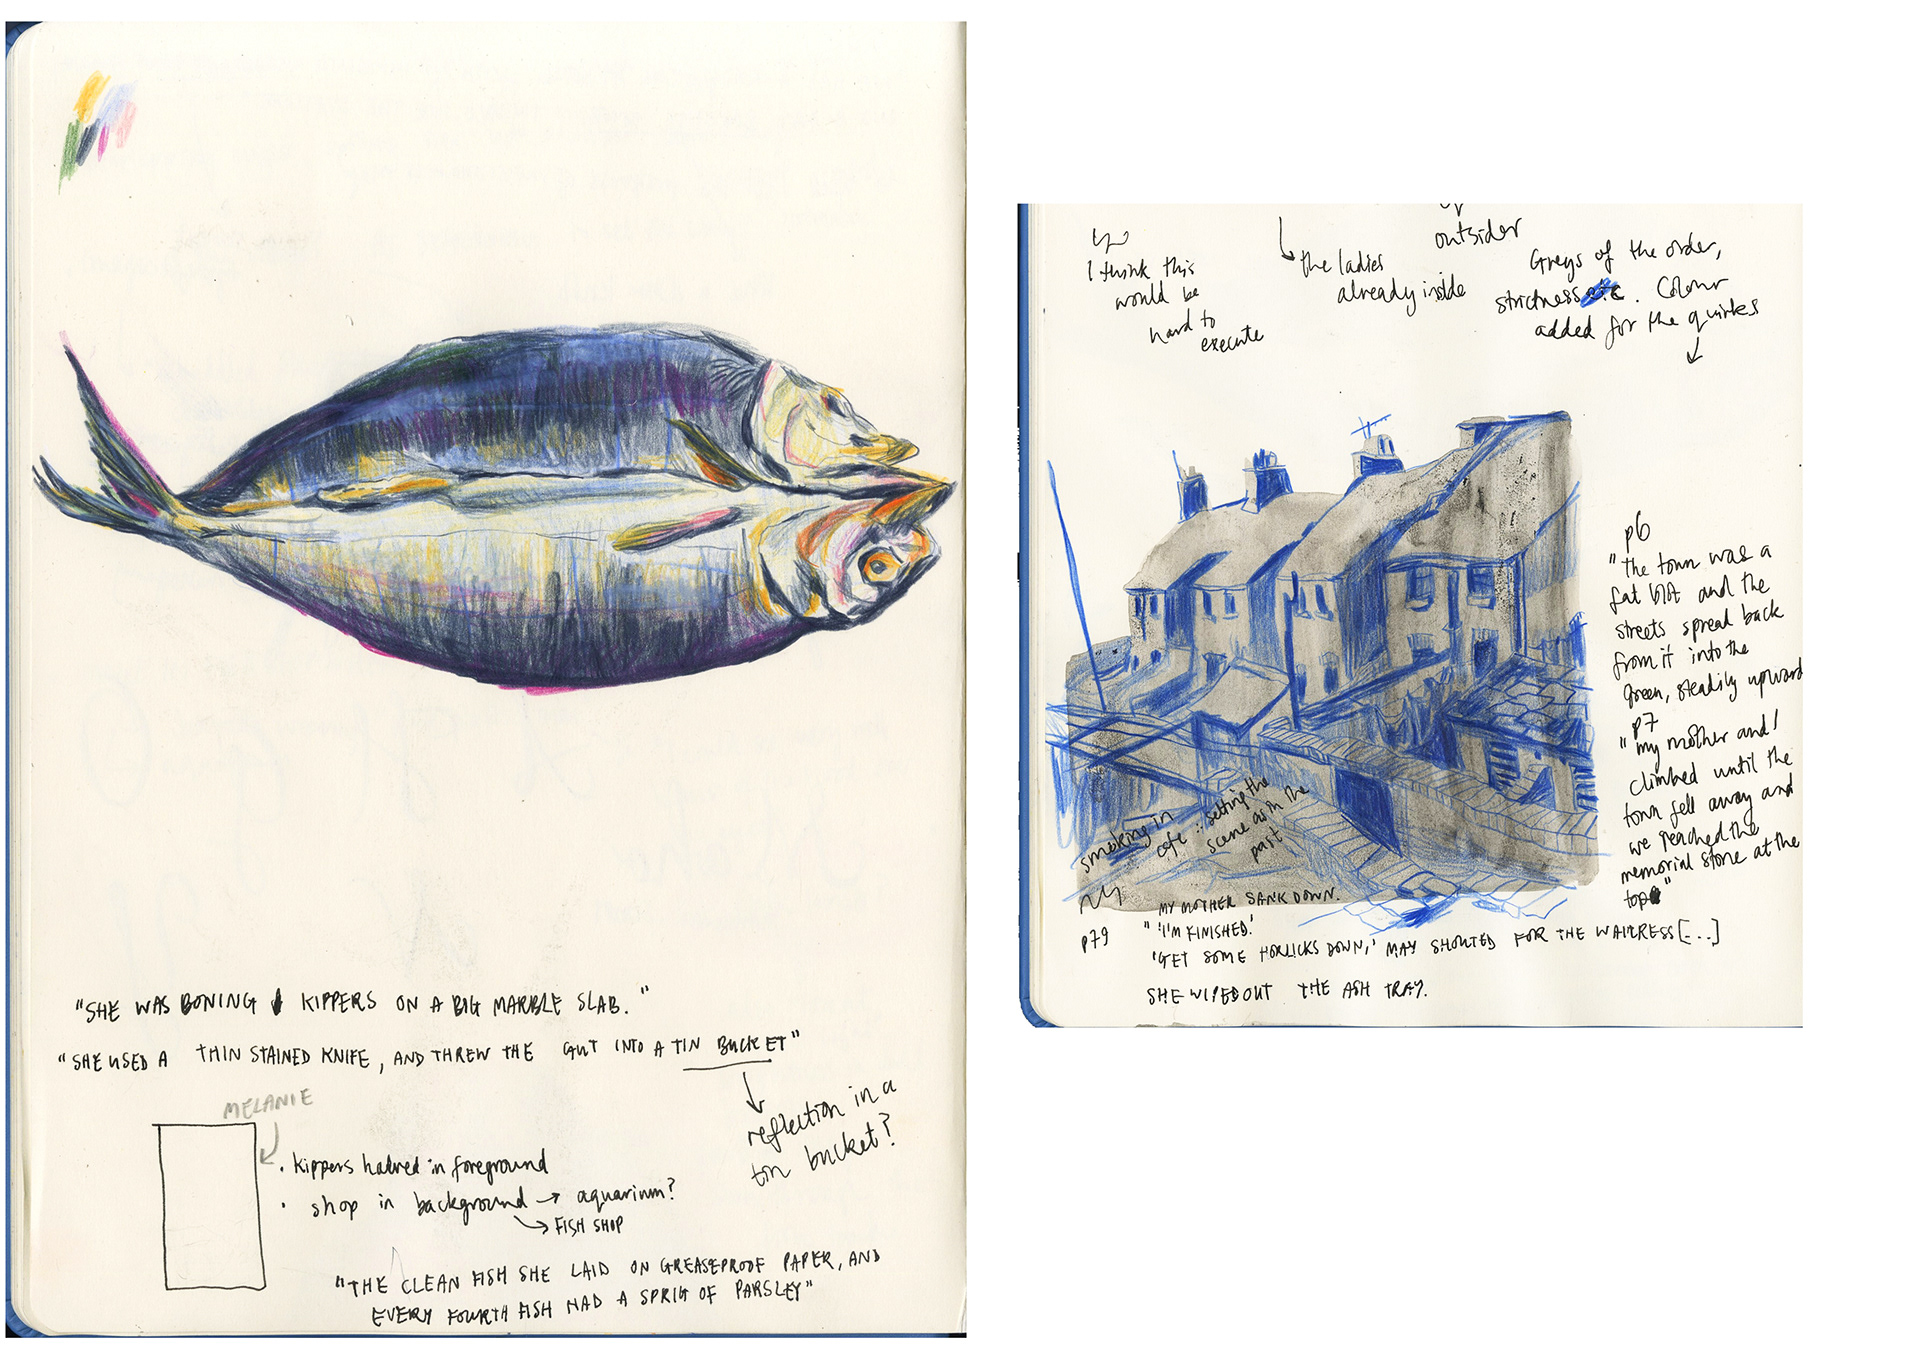 "SHE WAS BONING KIPPERS ON A BIG MARBLE SLAB."
"SHE USED A THIN STAINED KNIFE, AND THREW THE GUT INTO A TIN BUCKET"
reflection in a
tin bucket?
MELANIE
• kippers halved in foreground
• shop in background → aquarium?
FISH SHOP
"THE CLEAN FISH SHE LAID ON GREASEPROOF PAPER, AND
EVERY FOURTH FISH HAD A SPRIG OF PARSLEY"
I think this
would be
hard to
execute
the ladies
already inside
outsider
Greys of the order,
strictness etc. Colour
added for the quirks
p6
"the town was a
fat blot and the
streets spread back
from it into the
green, steadily upward
p7
"my mother and I
climbed until the
town fell away and
we reached the
memorial stone at the
top"
smoking in
cafe : setting the
scene as in the
past
p79
"MY MOTHER SANK DOWN.
"'I'M FINISHED.'
'GET SOME HORLICKS DOWN,' MAY SHOUTED FOR THE WAITRESS [...]
SHE WIPED OUT THE ASH TRAY.